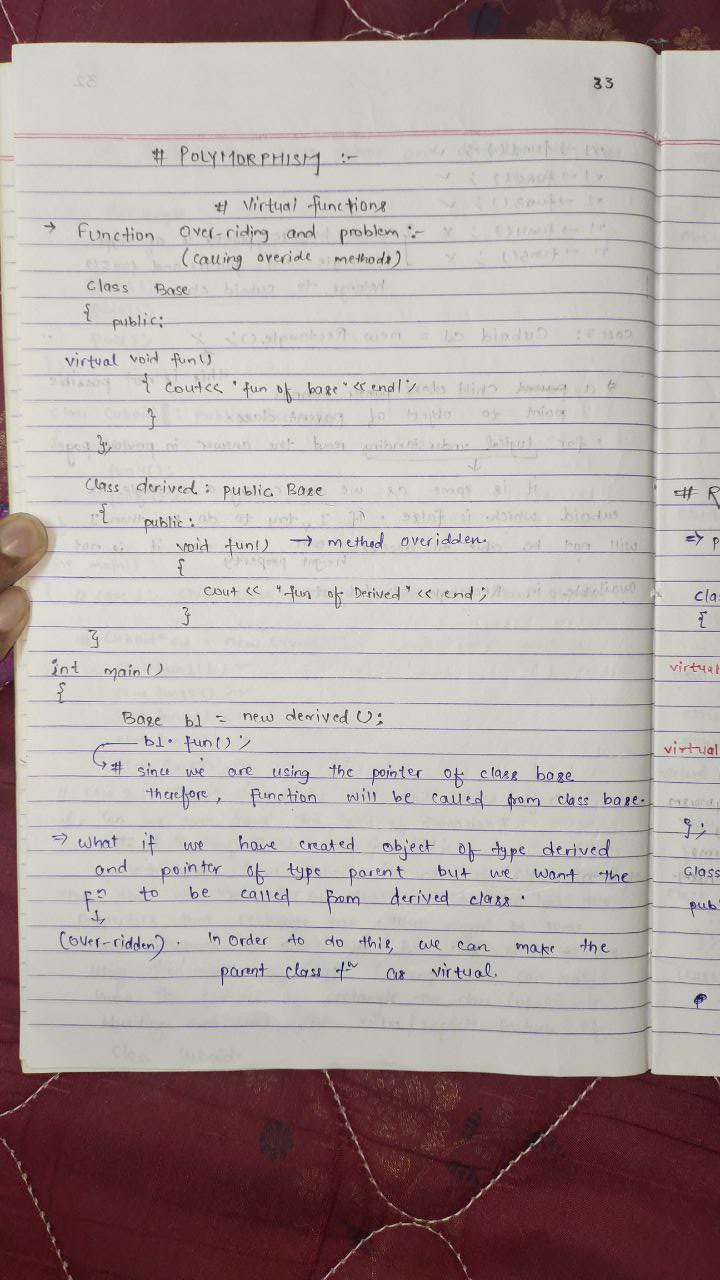 33
# POLYMORPHISM :-
# Virtual functions
→ Function Over-riding and problem :-
(calling overide methods)
class Base
{
public:
virtual void fun()
{ cout<< "fun of base" << endl;
}
};
Class derived : public Base
{
public:
void fun() → method overidden.
{
cout << "fun of Derived" << end;
}
}
int main()
{
Base b1 = new derived();
b1. fun();
# since we are using the pointer of class base
therefore, Function will be called from class base.
⇒ What if we have created object of type derived
and pointer of type parent but we want the
Fn to be called from derived class.
↓
(over-ridden). In order to do this, we can make the
parent class fn as virtual.
# R
⇒ P
clas
{
virtual
virtual
};
Class
pub